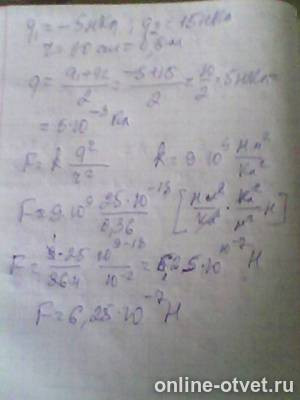 q₁ = -5 нКл ; q₂ = 15 нКл
r = 60 см = 0,6 м
q = (q₁+q₂)/2 = (-5+15)/2 = 10/2 = 5 нКл =
= 5·10⁻⁹ Кл
F = k q²/r² k = 9·10⁹ Нм²/Кл²
F = 9·10⁹ 25·10⁻¹⁸/0,36 [Нм²/Кл² · Кл²/м² = Н]
F = 9·25/36 10⁹⁻¹⁸/10⁻² = 6,25·10⁻⁷ Н
F = 6,25·10⁻⁷ Н
online-otvet.ru